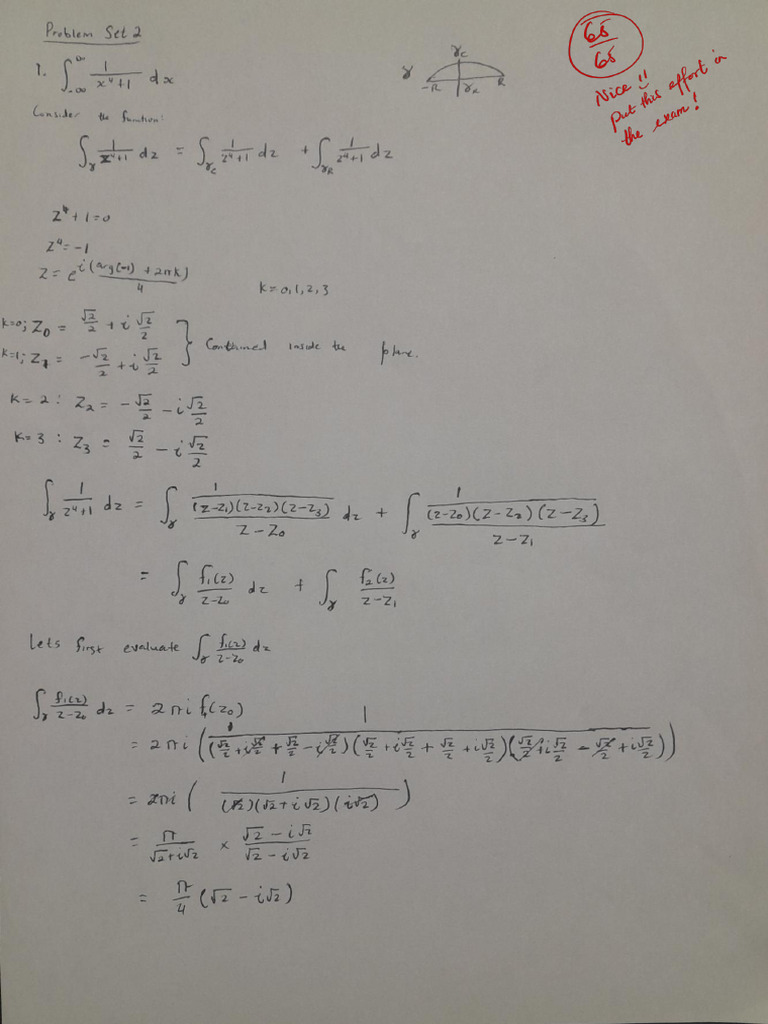 Problem Set 2
65/65
Nice !!
Put this effort in
the exam!
1. ∫_{-∞}^{∞} 1/(x⁴+1) dx
γ γ_C -R γ_R R
Consider the function:
∫_γ 1/(z⁴+1) dz = ∫_{γ_C} 1/(z⁴+1) dz + ∫_{γ_R} 1/(z⁴+1) dz
z⁴ + 1 = 0
z⁴ = -1
z = e^{i(arg(-1) + 2πk)/4} k = 0, 1, 2, 3
k=0; z₀ = √2/2 + i √2/2
k=1; z₁ = -√2/2 + i √2/2 } Contained inside the
k = 2 : z₂ = -√2/2 - i √2/2
k = 3 : z₃ = √2/2 - i √2/2
∫_γ 1/(z⁴+1) dz = ∫_γ (1/((z-z₁)(z-z₂)(z-z₃)))/(z-z₀) dz + ∫_γ (1/((z-z₀)(z-z₂)(z-z₃)))/(z-z₁)
= ∫_γ f₁(z)/(z-z₀) dz + ∫_γ f₂(z)/(z-z₁)
Lets first evaluate ∫_γ f₁(z)/(z-z₀) dz
∫_γ f₁(z)/(z-z₀) dz = 2πi f₁(z₀)
= 2πi (1/((√2/2 + i√2/2 + √2/2 - i√2/2)(√2/2 + i√2/2 + √2/2 + i√2/2)(√2/2 + i√2/2 - √2/2 + i√2/2)))
= 2πi (1/((√2)(√2 + i√2)(i√2)))
= π/(√2+i√2) × (√2 - i√2)/(√2 - i√2)
= π/4 (√2 - i√2)